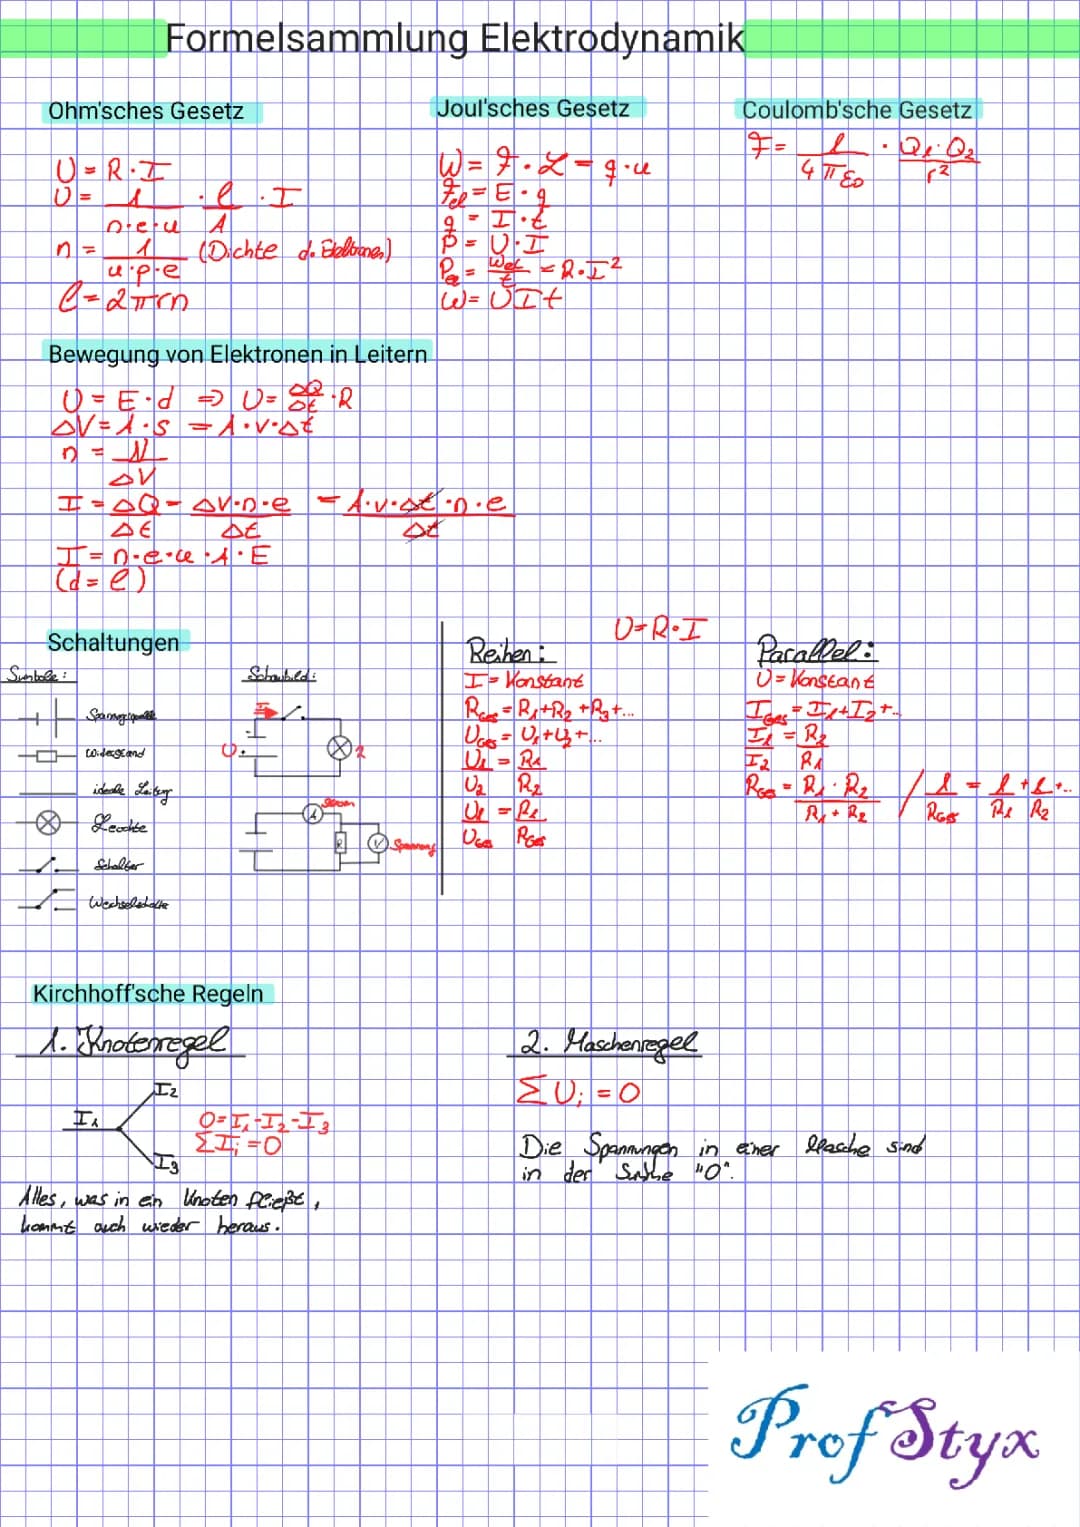 Formelsammlung Elektrodynamik
Ohm'sches Gesetz
U = R·I
U = 1/(n·e·u) · l/A · I
n = 1/(u·p·e) (Dichte d. Elektronen)
l = 2πrn
Joul'sches Gesetz
W = F · L = q·u
Fel = E · q
q = I·t
P = U·I
Pel = Wel/t = R·I²
W = UIt
Coulomb'sche Gesetz
F = 1/(4πε0) · Q1·Q2/r²
Bewegung von Elektronen in Leitern
U = E·d ⇒ U = ΔQ/Δt · R
ΔV = A·s = A·v·Δt
n = N/ΔV
I = ΔQ/Δt = ΔV·n·e/Δt = A·v·Δt·n·e/Δt
I = n·e·u·A·E
(d = l)
Schaltungen
Symbole:
Spannungsquelle
Widerstand
ideale Leitung
Leuchte
Schalter
Wechselschalter
Schaubild:
I
U
R
Strom
A
R
V Spannung
U=R·I
Reihen:
I = Konstant
RGes = R1+R2+R3+...
UGes = U1+U2+...
U1/U2 = R1/R2
U1/UGes = R1/RGes
Parallel:
U = Konstant
IGes = I1+I2+..
I1/I2 = R2/R1
RGes = R1·R2/(R1+R2) / 1/RGes = 1/R1 + 1/R2 +..
Kirchhoff'sche Regeln
1. Knotenregel
I2
I1
I3
0=I1-I2-I3
ΣIi=0
Alles, was in ein Knoten fließt,
kommt auch wieder heraus.
2. Maschenregel
ΣUi = 0
Die Spannungen in einer Masche sind
in der Summe "0".
Prof Styx